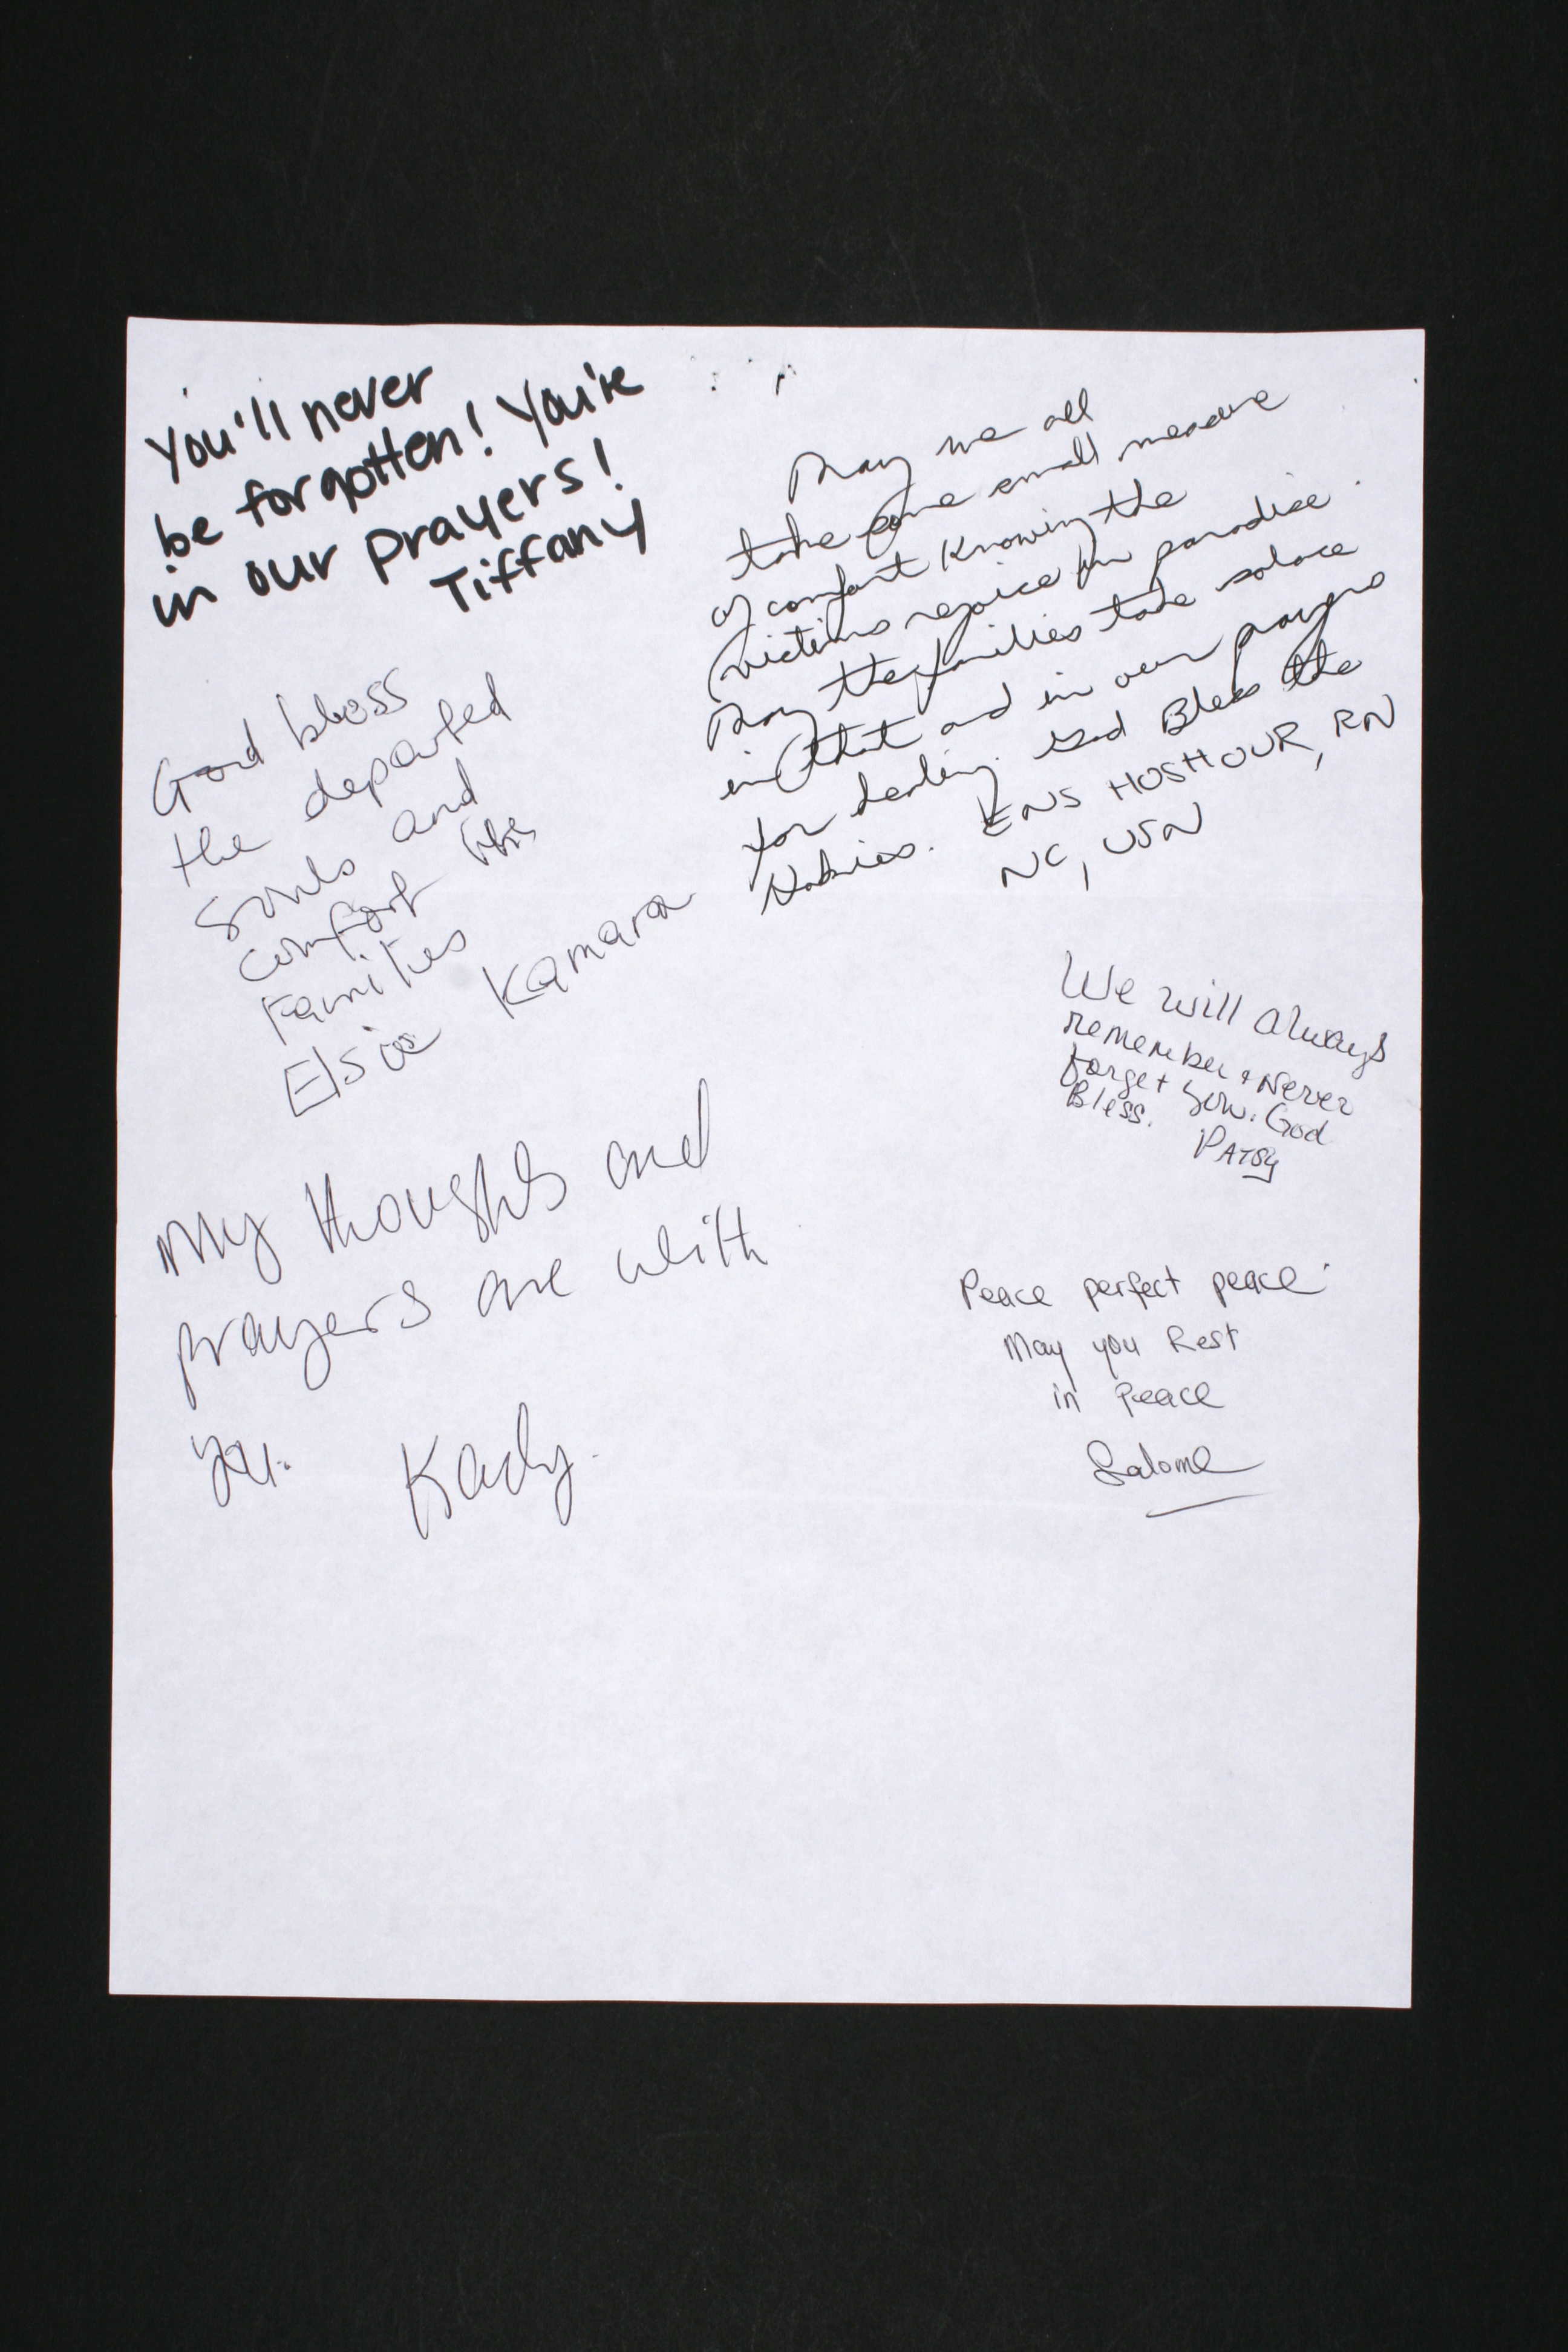 You'll never
be forgotten! You're
in our prayers!
Tiffany
May we all
take some small measure
of comfort knowing the
victims rejoice in paradise.
May the families take solace
in that and in our prayers
for healing. God Bless the
Hokies. ENS HOSHOUR, RN
NC, USN
God bless
the departed
souls and
comfort the
Families
Elsie Kamara
We will always
remember & Never
forget you. God
Bless.
PATSY
My thoughts and
prayers are with
you. Kady.
Peace perfect peace.
May you Rest
in Peace
Salome